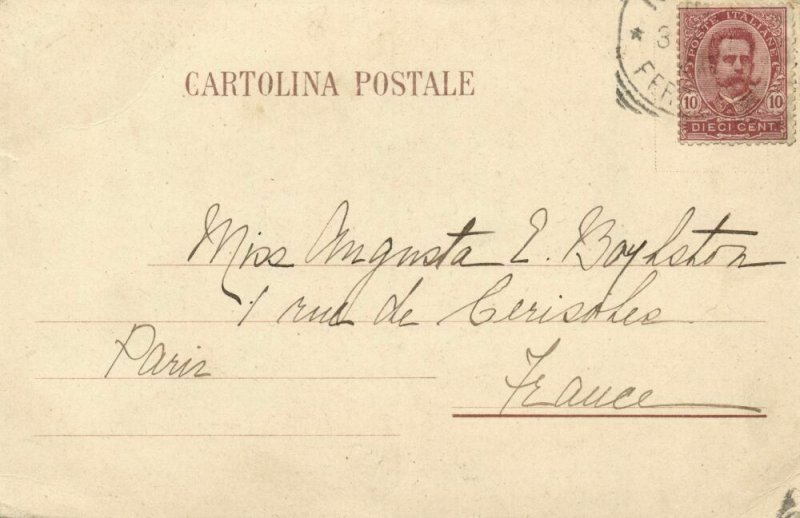 CARTOLINA POSTALE
3
FER
POSTE ITALIANE
10 10
DIECI CENT.
Miss Augusta E. Boylston
1 rue de Cerisoles
Paris
France